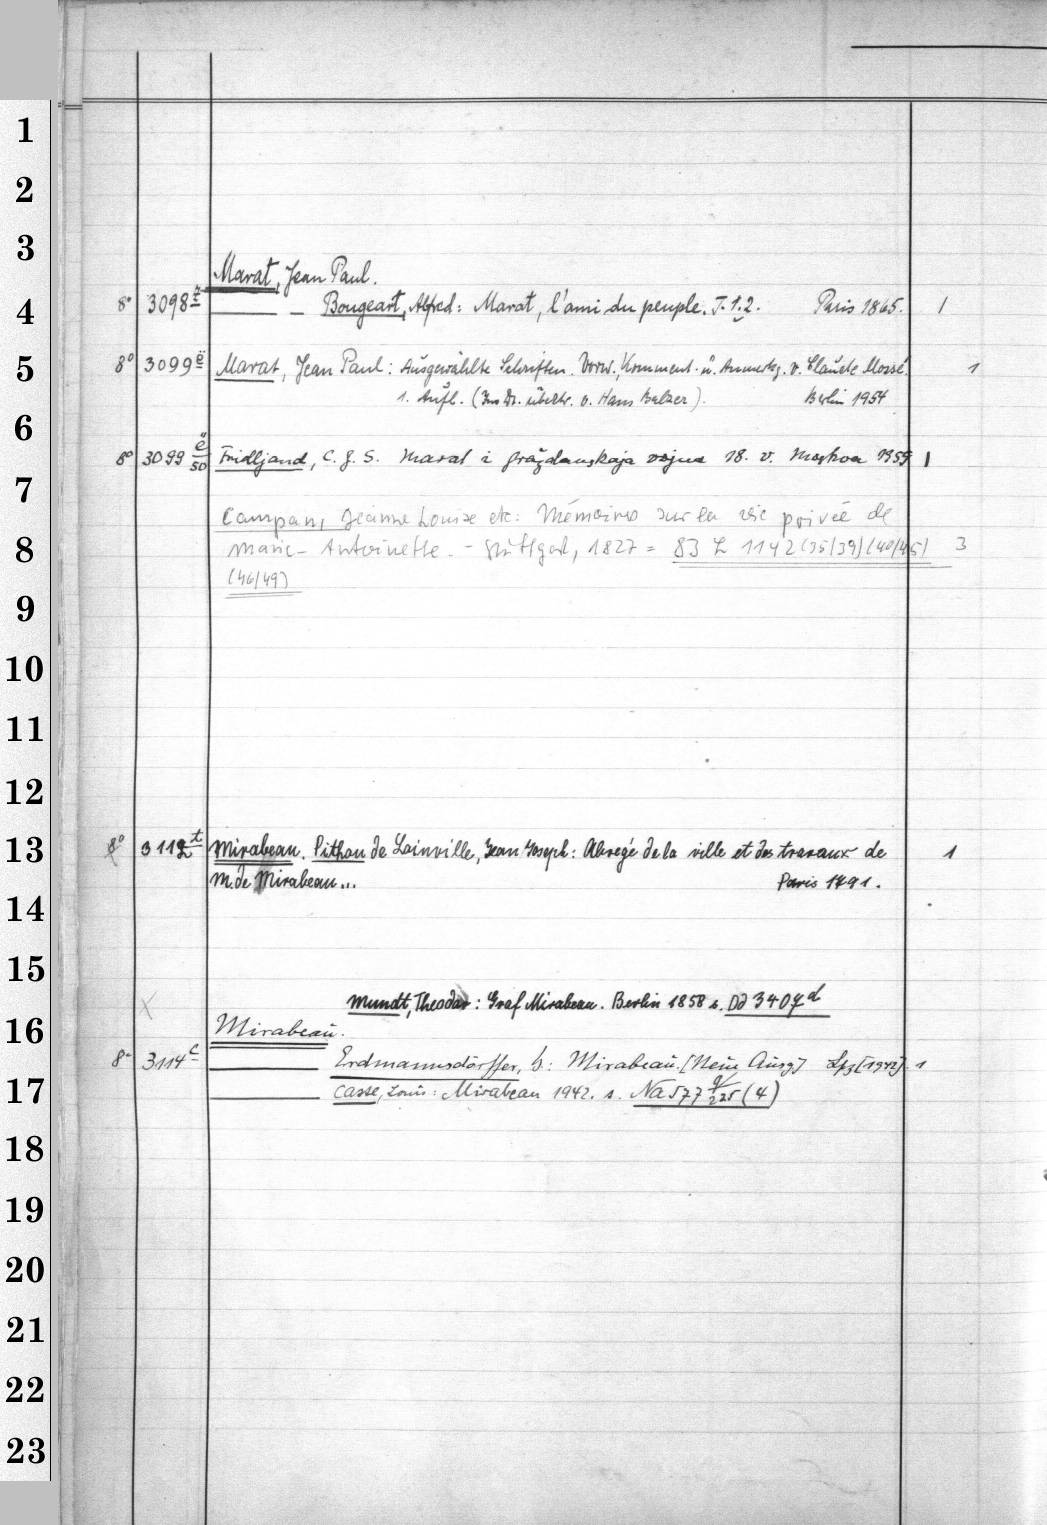 1
2
3
Marat, Jean Paul.
4 8° 3098 Bougeart, Alfred: Marat, l'ami du peuple. T. 1.2. Paris 1865. 1
5 8° 3099 ë Marat, Jean Paul: Ausgewählte Schriften. Vorw., Komment. u. Anmerkg. v. Claude Mossé 1
1. Aufl. (Ins Dt. übertr. v. Hans Balzer). Berlin 1954
6
8° 3099 ë/50 Fridljand, C. J. S. Marat i graždanskaja vojna 18. v. Moskva 1959 1
7
Campan, Jeanne Louise etc: Mémoires sur la vie privée de
8 Marie-Antoinette. - Stuttgart, 1827 = 83 L 1142 (35/39) (40/45) 3
(46/49)
9
10
11
12
13 8° 3112 t Mirabeau. Pithou de Loinville, Jean Joseph: Abregé de la ville et des travaux de 1
M. de Mirabeau... Paris 1791.
14
15
Mundt, Theodor: Graf Mirabeau. Berlin 1858 s. Dd 3407 d
16 Mirabeau.
8° 3114 c Erdmannsdörffer, B: Mirabeau. [Neue Ausg] Lpz [1942] 1
17 Casse, Louis: Mirabeau 1942. s. Na 577 9/225 (4)
18
19
20
21
22
23